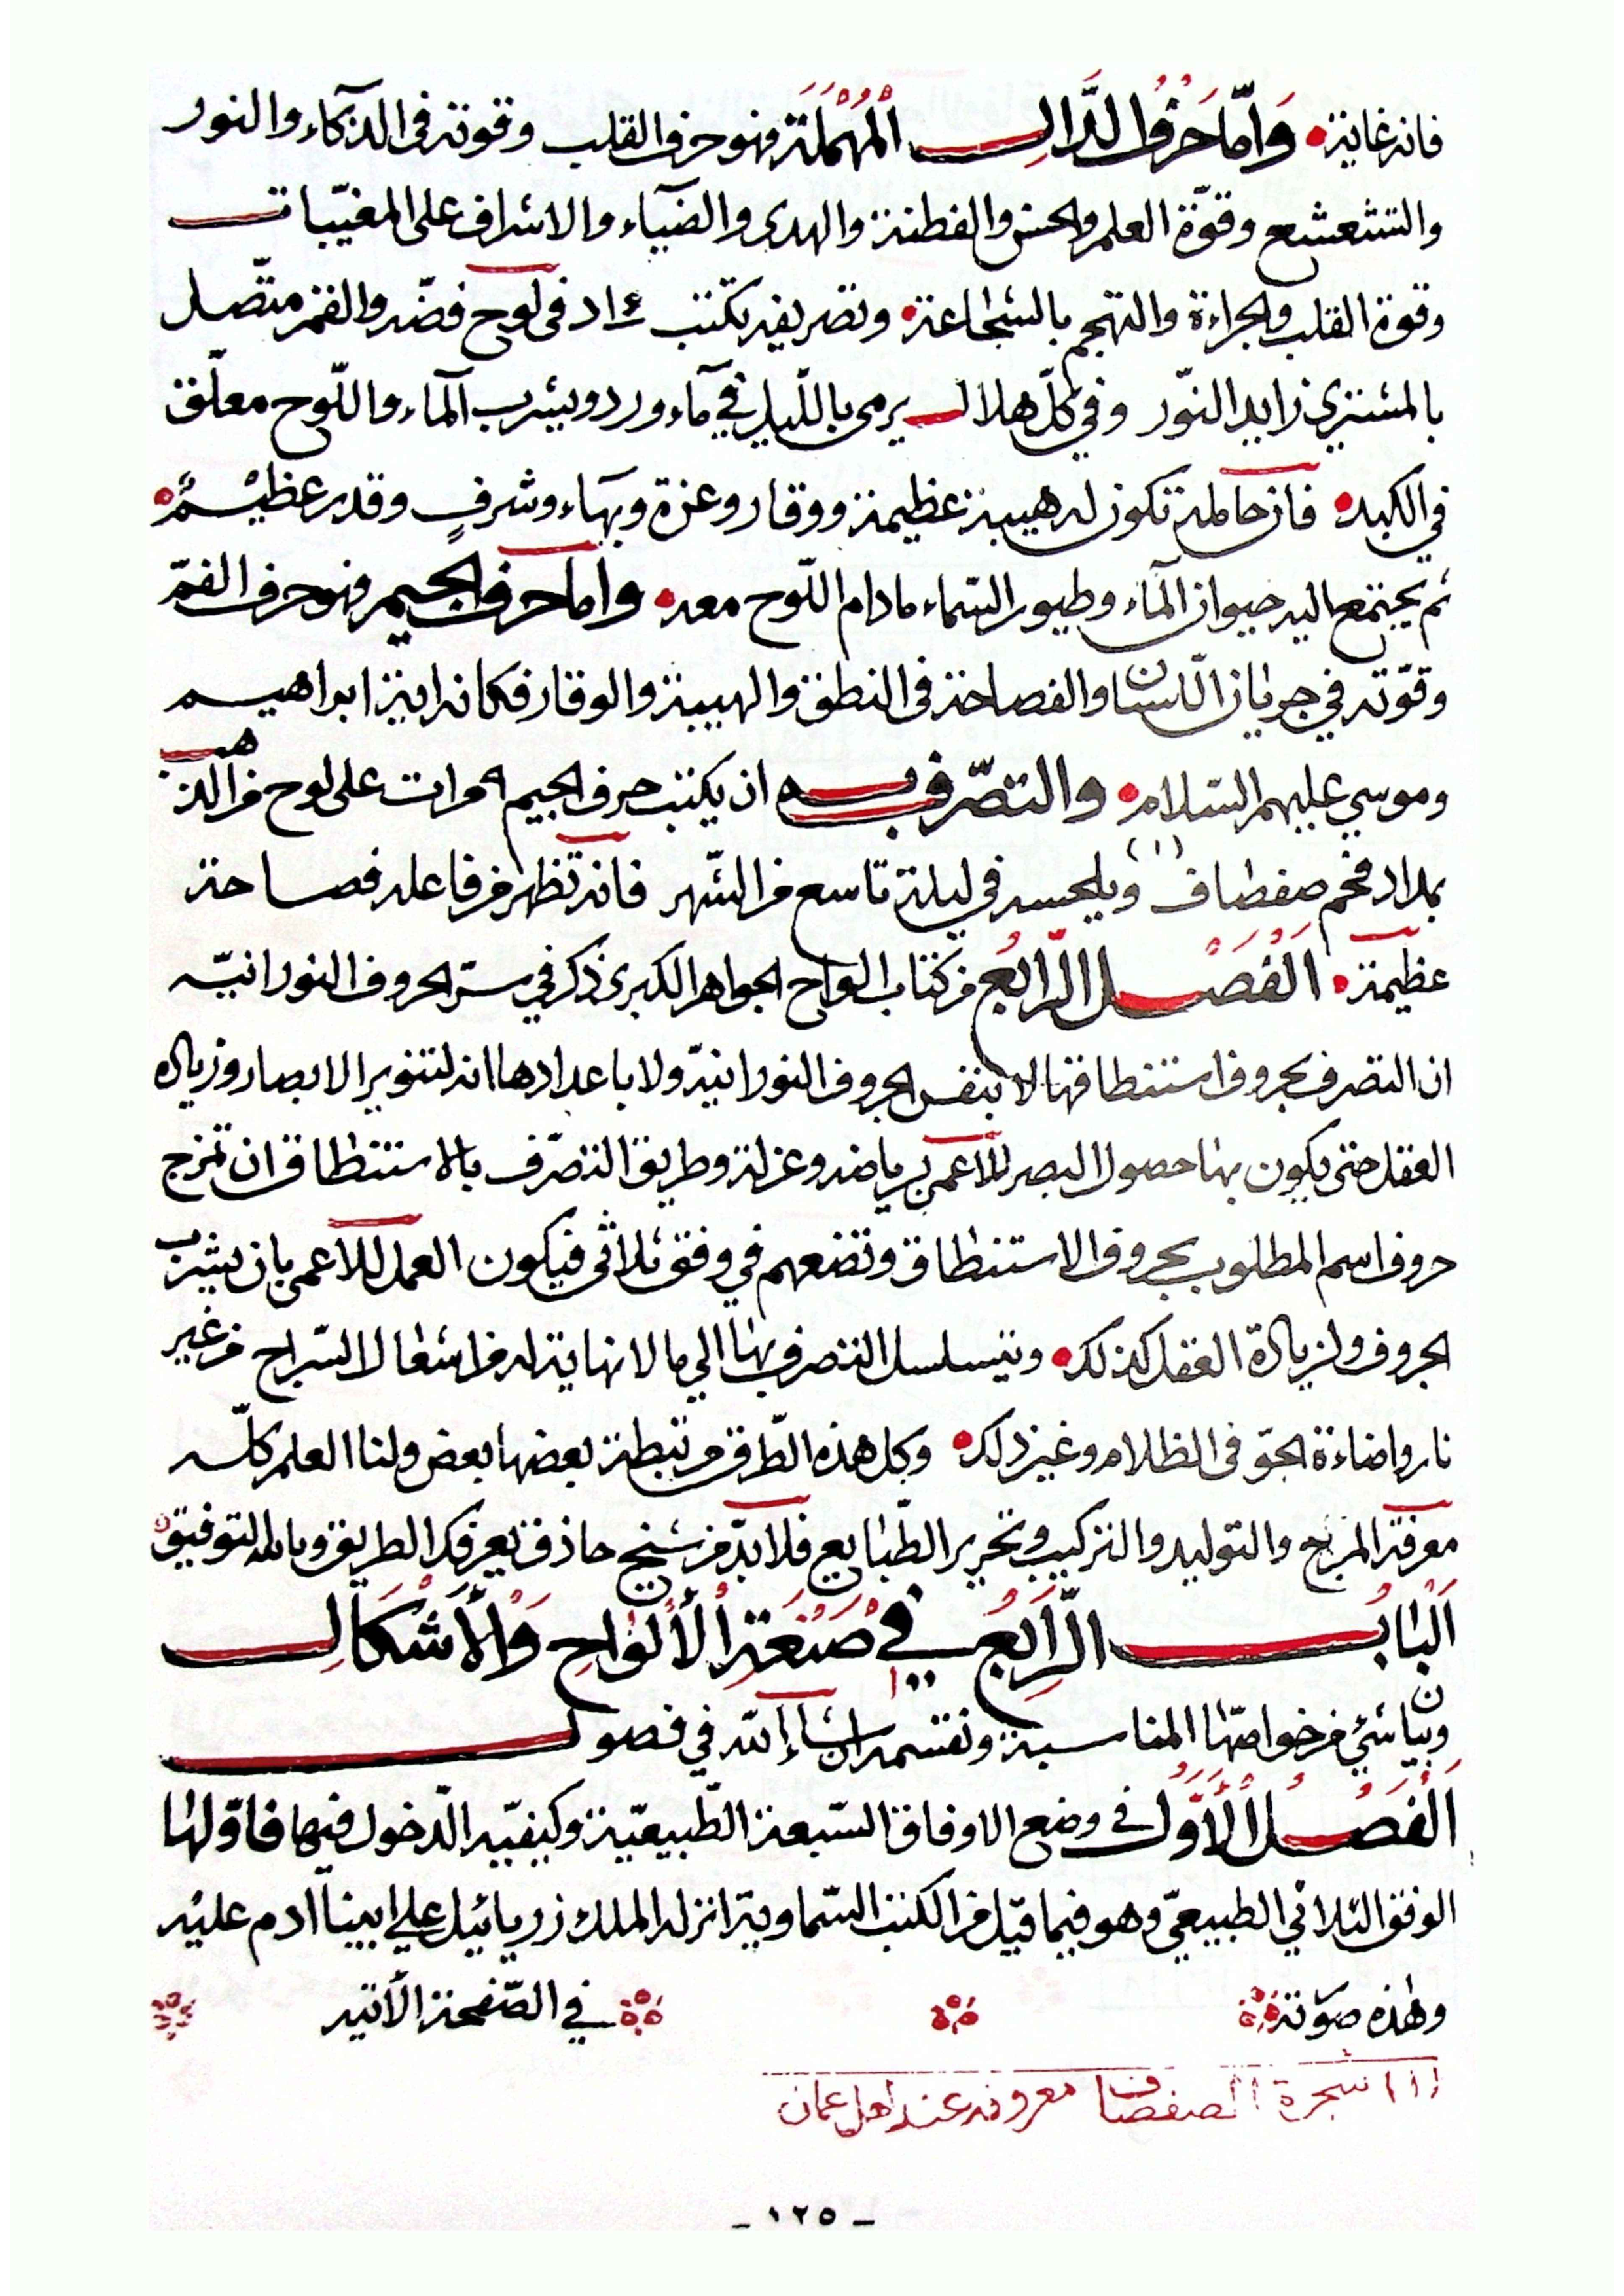 فانه غاية • وَامّا حَرْفُ الدَّالِ الْمُهْمَلَةِ فهو حرف القلب وقوته في الذكاء والنور
والتشعشع وقوّة العلم والحسّ والفطنة والهدى والضياء والاشراف على المغيّبات
وقوة القلب والجراءة والتهجم بالشجاعة • وتصريفه تكتب د في لوح فضّه والقمر متّصل
بالمشتري زايد النّور وفي كلّ هلال يرمى باللّيل في ماء ورد ويشرب الماء واللّوح معلّق
في الكبد • فان حامله تكون له هيبة عظيمة ووقار وعزة وبهاء وشرفٍ وقدر عظيم •
ثم يجتمع اليه حيوان الماء وطيور السّماء مادام اللّوح معه • واما حرف الجيم فهو حرف الفمّ
وقوّته في جريان اللّسان والفصاحة في النطق والهيبة والوقار فكان اية ابراهيم
وموسي عليهم السّلام • والتصّرف به ان يكتب حرف الجيم مرات على لوح من الذهب
بمداد فحم صفصاف (١) ويلحسه في ليلة تاسع من الشّهر فانه تظهر من فاعله فصاحة
عظيمة • اَلْفَصْلُ الرّابِعُ من كتاب الواح الجواهر الكبرى ذكر في سرّ الحروف النورانيّه
ان التصرف بحروف استنطاقها لا بنفس الحروف النورانيّة ولا باعدادها انه لتنوير الابصار وزياده
العقل حتى يكون بها حصول البصر للأعمى برياضه وعزلة وطريق التصّرف بالاستنطاق ان تمزج
حروف اسم المطلوب بحروف الاستنطاق وتضعهم في وفق ثلاثى فيكون العمل للاعمى بان يشرب
الحروف ولزيادة العقل كذلك • ويتسلسل التصرف بها الي ما لا نهاية له من اشعال السّراج من غير
نار واضاءة الجوّ فى الظلام وغير ذلك • وكل هذه الطّرق مرتبطة بعضها بعض ولنا العلم كلّه
معرفة المزاج والتوليد والتركيب وتحرير الطّبايع فلابدّ من شيخ حاذق يعرفك الطريق وبالله التوفيق
اَلْبابُ الرّابِعُ في صَنْعَةِ الْأَلْواحِ وَالْأَشْكَالِ
وبيان شئ من خواصّها المناسبة ونقسمه ان شاء الله في فصول
اَلْفَصْلُ الْأَوَّلُ في وضع الاوفاق السّبعة الطّبيعيّة وكيفيّه الدّخول فيها فاوّلها
الوفق الثلاثي الطبيعيّ وهو فيما قيل من الكتب السّماوية انزله الملك زريائيل علي ابينا ادم عليه
وهذه صورته في الصّفحة الأتيه
(١) شجرة الصفصاف معروفه عند اهل عمان
- ١٢٥ -